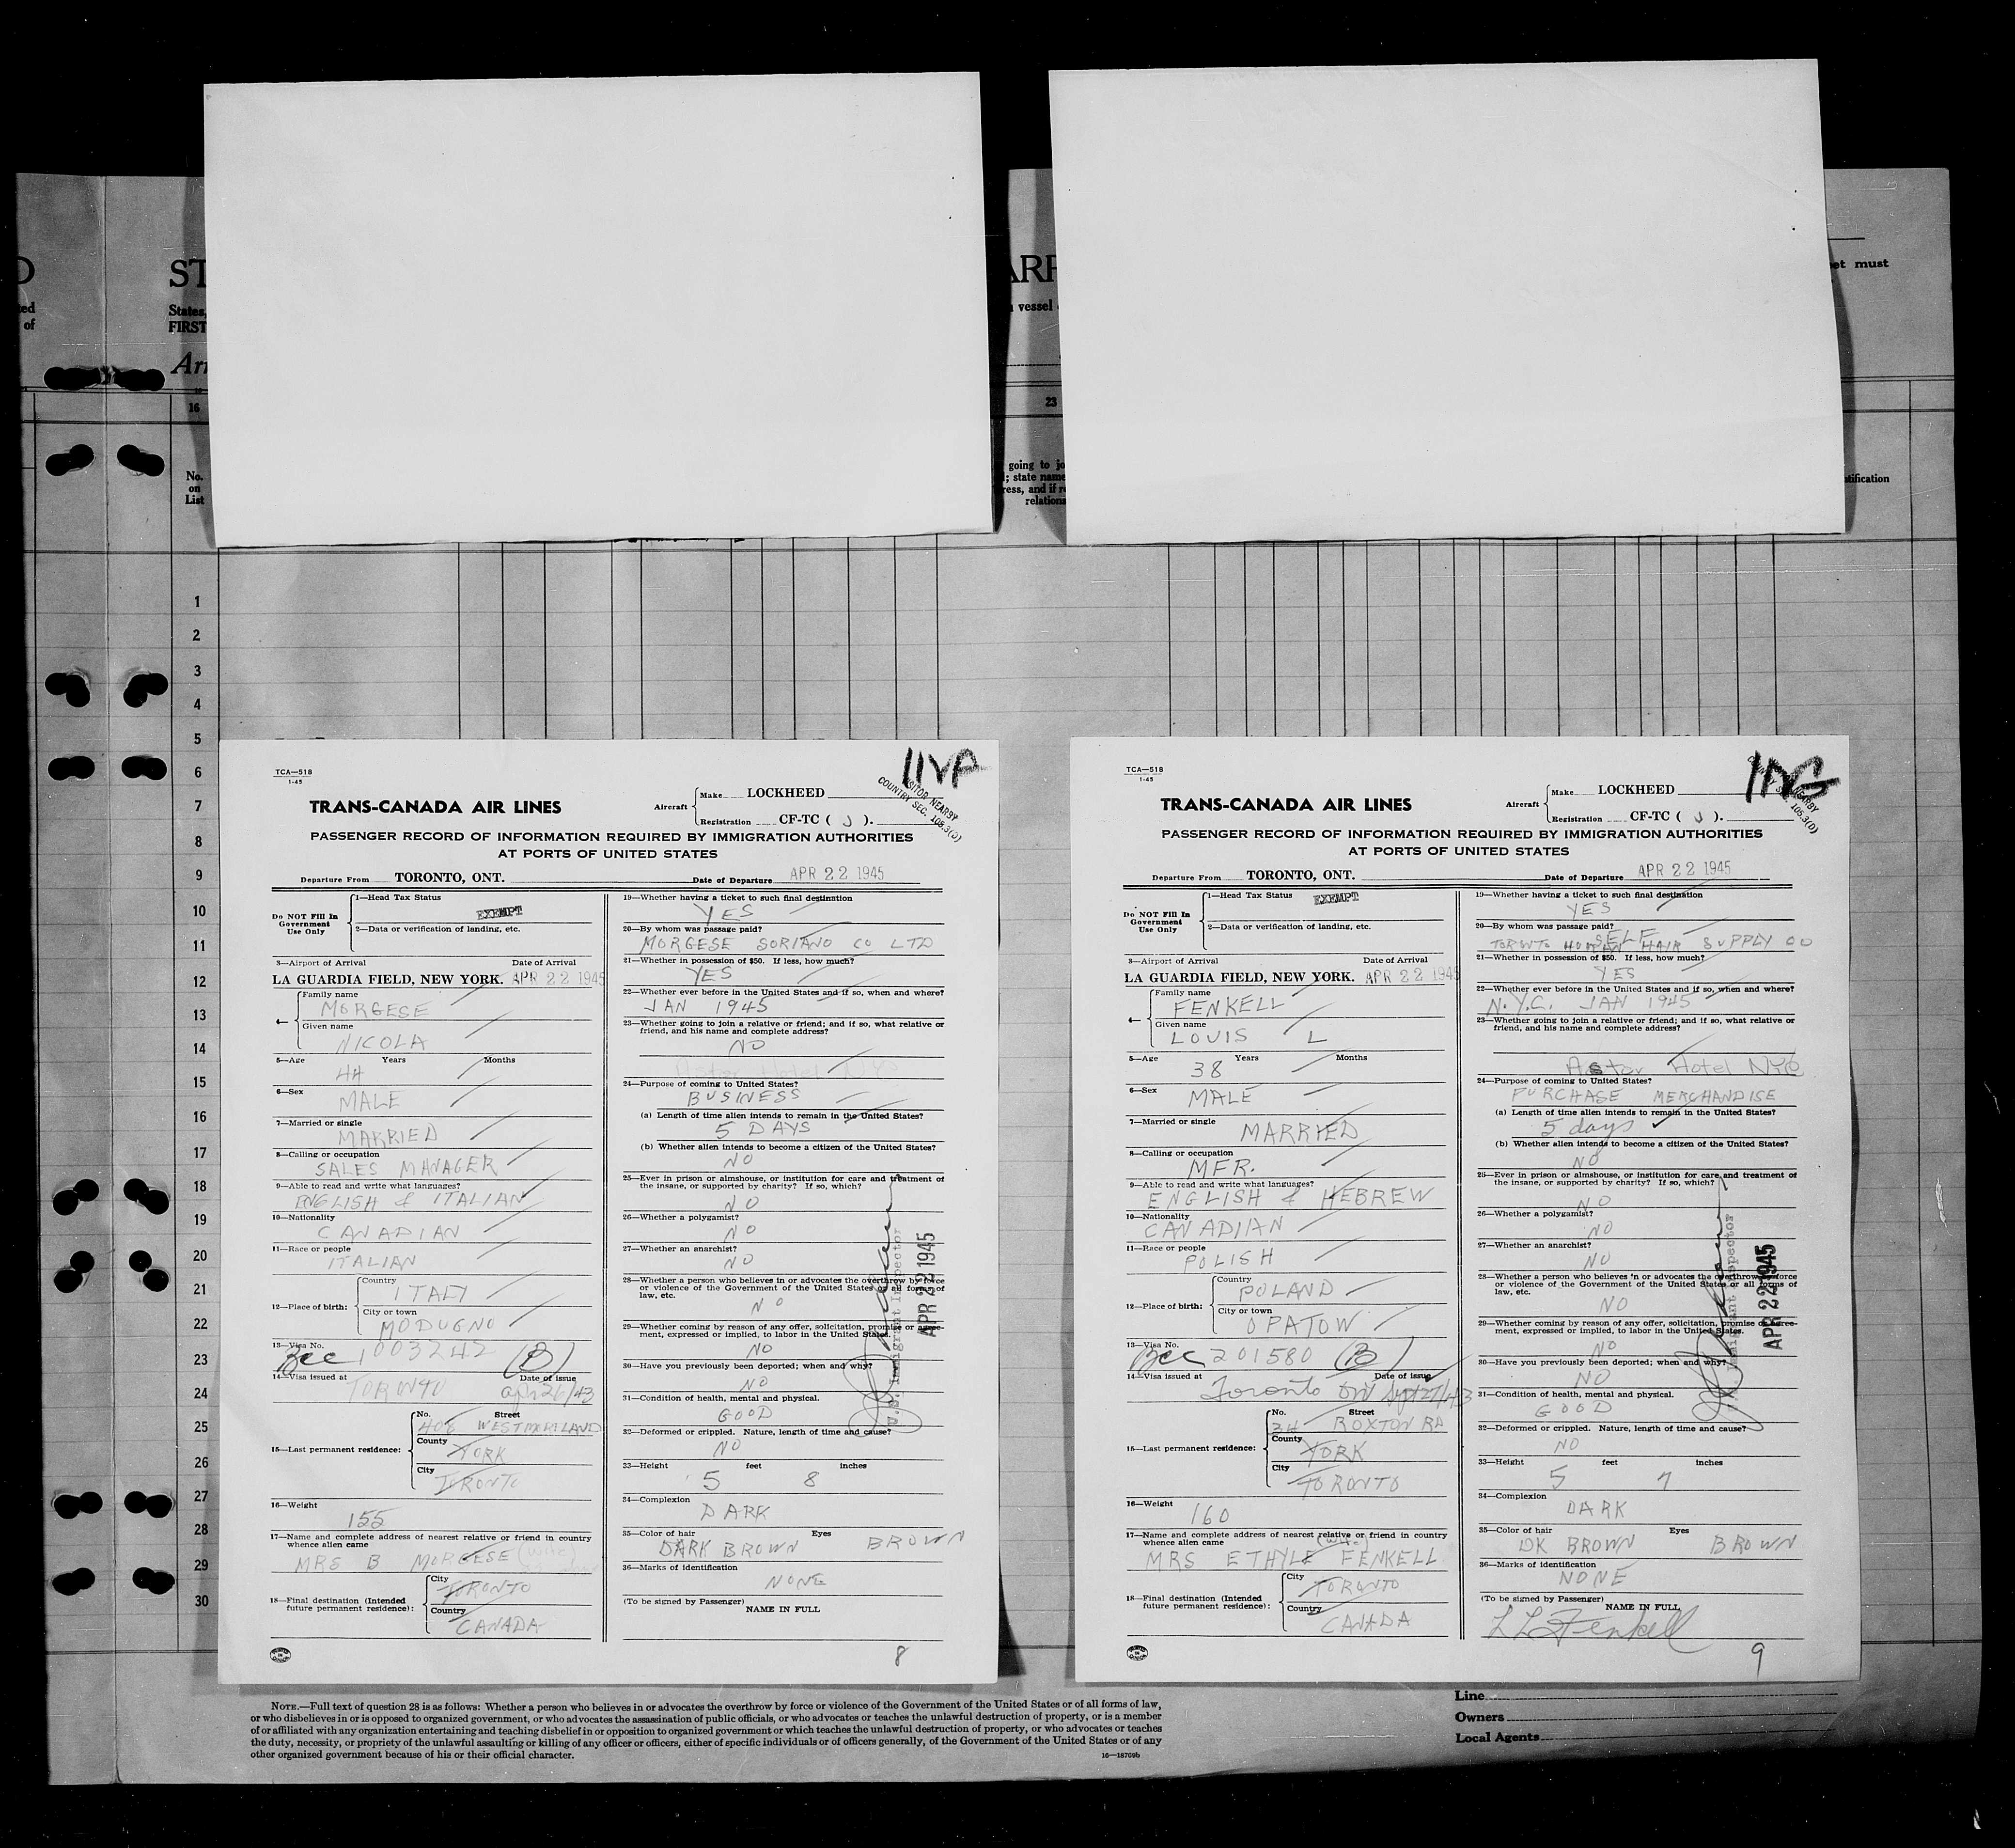 D
ted
of
ST
States,
FIRST
Arr
ARR
a vessel
et must
16
23
No.
on
List
going to jo
; state name
ress, and if re
relations
tification
1
2
3
4
5
6
7
8
9
10
11
12
13
14
15
16
17
18
19
20
21
22
23
24
25
26
27
28
29
30
TCA—518
1-45
11VA
VISITOR NEARBY
COUNTRY SEC. 108.3(D)
TRANS-CANADA AIR LINES
Aircraft
Make LOCKHEED
Registration CF-TC ( J ).
PASSENGER RECORD OF INFORMATION REQUIRED BY IMMIGRATION AUTHORITIES
AT PORTS OF UNITED STATES
Departure From TORONTO, ONT. Date of Departure APR 22 1945
Do NOT Fill In
Government
Use Only
1—Head Tax Status
EXEMPT
2—Data or verification of landing, etc.
3—Airport of Arrival Date of Arrival
LA GUARDIA FIELD, NEW YORK. APR 22 1945
4—
Family name
MORGESE
Given name
NICOLA
5—Age Years Months
44
6—Sex
MALE
7—Married or single
MARRIED
8—Calling or occupation
SALES MANAGER
9—Able to read and write what languages?
ENGLISH & ITALIAN
10—Nationality
CANADIAN
11—Race or people
ITALIAN
12—Place of birth:
Country
ITALY
City or town
MODUGNO
13—Visa No.
Bcc 1003242 (B)
14—Visa issued at Date of issue
TORONTO Apr 26/43
15—Last permanent residence:
No. Street
408 WESTMORELAND
County
YORK
City
TORONTO
16—Weight
155
17—Name and complete address of nearest relative or friend in country
whence alien came
MRS B MORGESE (Wife)
18—Final destination (Intended
future permanent residence):
City
TORONTO
Country
CANADA
19—Whether having a ticket to such final destination
YES
20—By whom was passage paid?
MORGESE SORIANO CO LTD
21—Whether in possession of $50. If less, how much?
YES
22—Whether ever before in the United States and if so, when and where?
JAN 1945
23—Whether going to join a relative or friend; and if so, what relative or
friend, and his name and complete address?
NO
Astor Hotel NYC
24—Purpose of coming to United States?
BUSINESS
(a) Length of time alien intends to remain in the United States?
5 DAYS
(b) Whether alien intends to become a citizen of the United States?
NO
25—Ever in prison or almshouse, or institution for care and treatment of
the insane, or supported by charity? If so, which?
NO
26—Whether a polygamist?
NO
27—Whether an anarchist?
NO
28—Whether a person who believes in or advocates the overthrow by force
or violence of the Government of the United States or all forms of
law, etc.
NO
29—Whether coming by reason of any offer, solicitation, promise or agree-
ment, expressed or implied, to labor in the United States.
NO
30—Have you previously been deported; when and why?
NO
31—Condition of health, mental and physical.
GOOD
32—Deformed or crippled. Nature, length of time and cause?
NO
33—Height feet inches
5 8
34—Complexion
DARK
35—Color of hair Eyes
DARK BROWN BROWN
36—Marks of identification
NONE
(To be signed by Passenger)
NAME IN FULL
U.S. Immigrant Inspector
APR 22 1945
8
TCA—518
1-45
NEARBY
SEC. 108.3(D)
TRANS-CANADA AIR LINES
Aircraft
Make LOCKHEED
Registration CF-TC ( J ).
PASSENGER RECORD OF INFORMATION REQUIRED BY IMMIGRATION AUTHORITIES
AT PORTS OF UNITED STATES
Departure From TORONTO, ONT. Date of Departure APR 22 1945
Do NOT Fill In
Government
Use Only
1—Head Tax Status
EXEMPT
2—Data or verification of landing, etc.
3—Airport of Arrival Date of Arrival
LA GUARDIA FIELD, NEW YORK. APR 22 1945
4—
Family name
FENKELL
Given name
LOUIS L
5—Age Years Months
38
6—Sex
MALE
7—Married or single
MARRIED
8—Calling or occupation
MFR.
9—Able to read and write what languages?
ENGLISH & HEBREW
10—Nationality
CANADIAN
11—Race or people
POLISH
12—Place of birth:
Country
POLAND
City or town
OPATOW
13—Visa No.
Bcc 201580 (B)
14—Visa issued at Date of issue
Toronto Ont Sept 27/43
15—Last permanent residence:
No. Street
34 ROXTON RD
County
YORK
City
TORONTO
16—Weight
160
17—Name and complete address of nearest relative or friend in country
whence alien came (wife)
MRS ETHYLE FENKELL
18—Final destination (Intended
future permanent residence):
City
TORONTO
Country
CANADA
19—Whether having a ticket to such final destination
YES
20—By whom was passage paid?
SELF
TORONTO HUMAN HAIR SUPPLY CO
21—Whether in possession of $50. If less, how much?
YES
22—Whether ever before in the United States and if so, when and where?
N.Y.C. JAN 1945
23—Whether going to join a relative or friend; and if so, what relative or
friend, and his name and complete address?
Astor Hotel NYC
24—Purpose of coming to United States?
PURCHASE MERCHANDISE
(a) Length of time alien intends to remain in the United States?
5 days
(b) Whether alien intends to become a citizen of the United States?
NO
25—Ever in prison or almshouse, or institution for care and treatment of
the insane, or supported by charity? If so, which?
NO
26—Whether a polygamist?
NO
27—Whether an anarchist?
NO
28—Whether a person who believes in or advocates the overthrow by force
or violence of the Government of the United States or all forms of
law, etc.
NO
29—Whether coming by reason of any offer, solicitation, promise or agree-
ment, expressed or implied, to labor in the United States.
NO
30—Have you previously been deported; when and why?
NO
31—Condition of health, mental and physical.
GOOD
32—Deformed or crippled. Nature, length of time and cause?
NO
33—Height feet inches
5 7
34—Complexion
DARK
35—Color of hair Eyes
DK BROWN BROWN
36—Marks of identification
NONE
(To be signed by Passenger)
NAME IN FULL
L L Fenkell
Immigrant Inspector
APR 22 1945
9
NOTE.—Full text of question 28 is as follows: Whether a person who believes in or advocates the overthrow by force or violence of the Government of the United States or of all forms of law,
or who disbelieves in or is opposed to organized government, or who advocates the assassination of public officials, or who advocates or teaches the unlawful destruction of property, or is a member
of or affiliated with any organization entertaining and teaching disbelief in or opposition to organized government or which teaches the unlawful destruction of property, or who advocates or teaches
the duty, necessity, or propriety of the unlawful assaulting or killing of any officer or officers, either of specific individuals or of officers generally, of the Government of the United States or of any
other organized government because of his or their official character.
16—18709b
Line
Owners
Local Agents